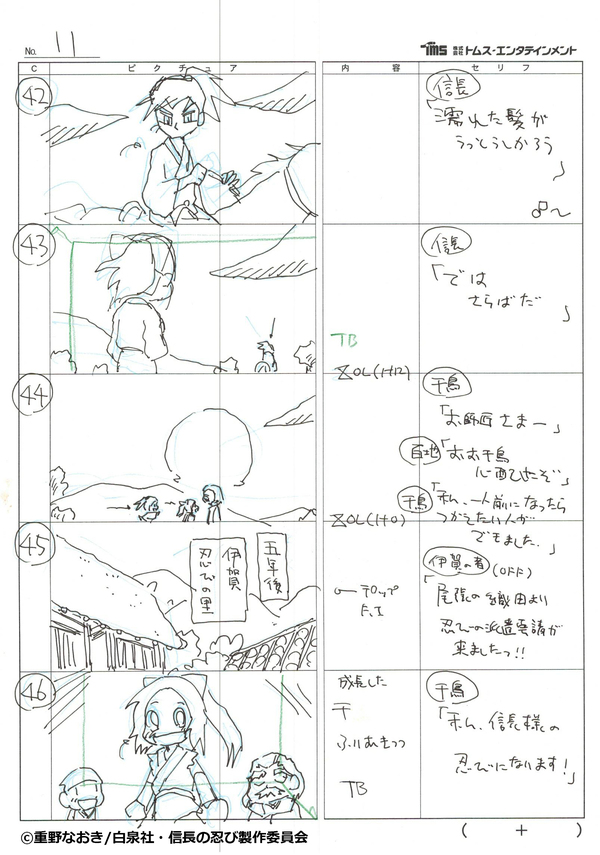 No. 11
TMS 株式会社 トムス・エンタテインメント
C ピクチュア 内容 セリフ
42
信長
「濡れた髪が
うっとうしかろう
」
♪〜
43
信長
「では
さらばだ
」
TB
OL(1+12)
44
千鳥
「お師匠さまー」
百地
「おお千鳥
心配したぞ」
千鳥
「私、一人前になったら
つかえたい人が
できました。」
OL(1+0)
45
五年後
伊賀
忍びの里
テロップ
F.I
伊賀の者 (OFF)
「尾張の織田より
忍びの派遣要請が
来ましたっ!!
46
成長した
千
ふりあむつつ
TB
千鳥
「私、信長様の
忍びになります!」
( + )
©重野なおき/白泉社・信長の忍び製作委員会